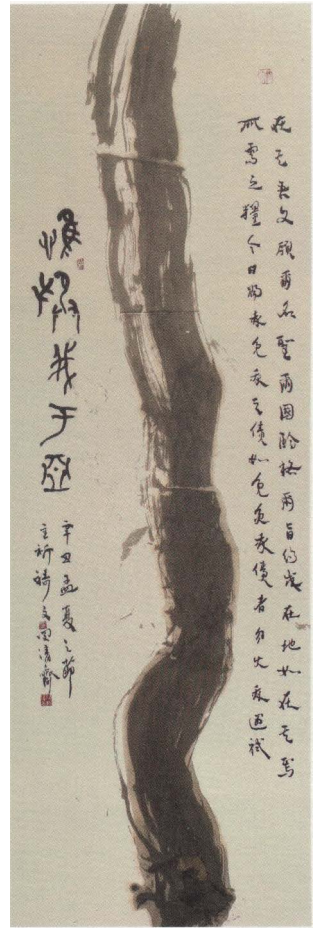 在天吾父願爾名聖爾國臨格爾旨得成在地如在天焉
所需之糧今日賜我免我之債如免負我債者勿我遇試
我于亞
辛丑孟夏之節
主祈禱文清齋